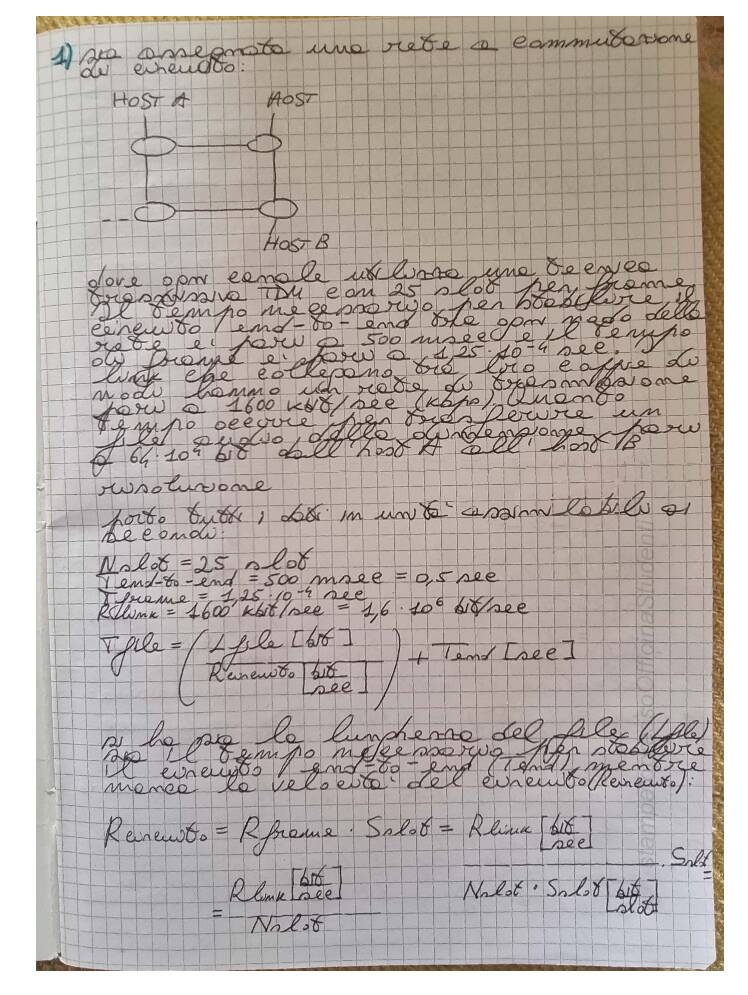 1) sia assegnata una rete a commutazione
di circuito:
HOST A HOST
HOST B
dove ogni canale utilizza una tecnica
trasmissiva TDM con 25 slot per frame,
Il tempo necessario per stabilire il
circuito end-to-end tra ogni nodo della
rete e' pari a 500 msec e il tempo
di frame e' pari a 1,25·10⁻⁴ sec. I
link che collegano tra loro coppie di
nodi hanno un rate di trasmissione
pari a 1600 kbit/sec (kbps). Quanto
tempo occorre per trasferire un
file audio della dimensione pari
a 64·10⁴ bit dall'host A all'host B
risoluzione
porto tutti i dati in unita' assimilabili ai
secondi:
Nslot = 25 slot
Tend-to-end = 500 msec = 0,5 sec
Tframe = 1,25·10⁻⁴ sec
Rlink = 1600 kbit/sec = 1,6·10⁶ bit/sec
Tfile = (Lfile [bit] / Rcircuito [bit/sec]) + Tend [sec]
si ha sia la lunghezza del file (Lfile)
sia il tempo necessario per stabilire
il circuito end-to-end (Tend) mentre
manca la velocita' del circuito (Rcircuito):
Rcircuito = Rframe · Sslot = Rlink [bit/sec] / Nslot · Sslot [bit/slot] · Sslot =
= Rlink [bit/sec] / Nslot